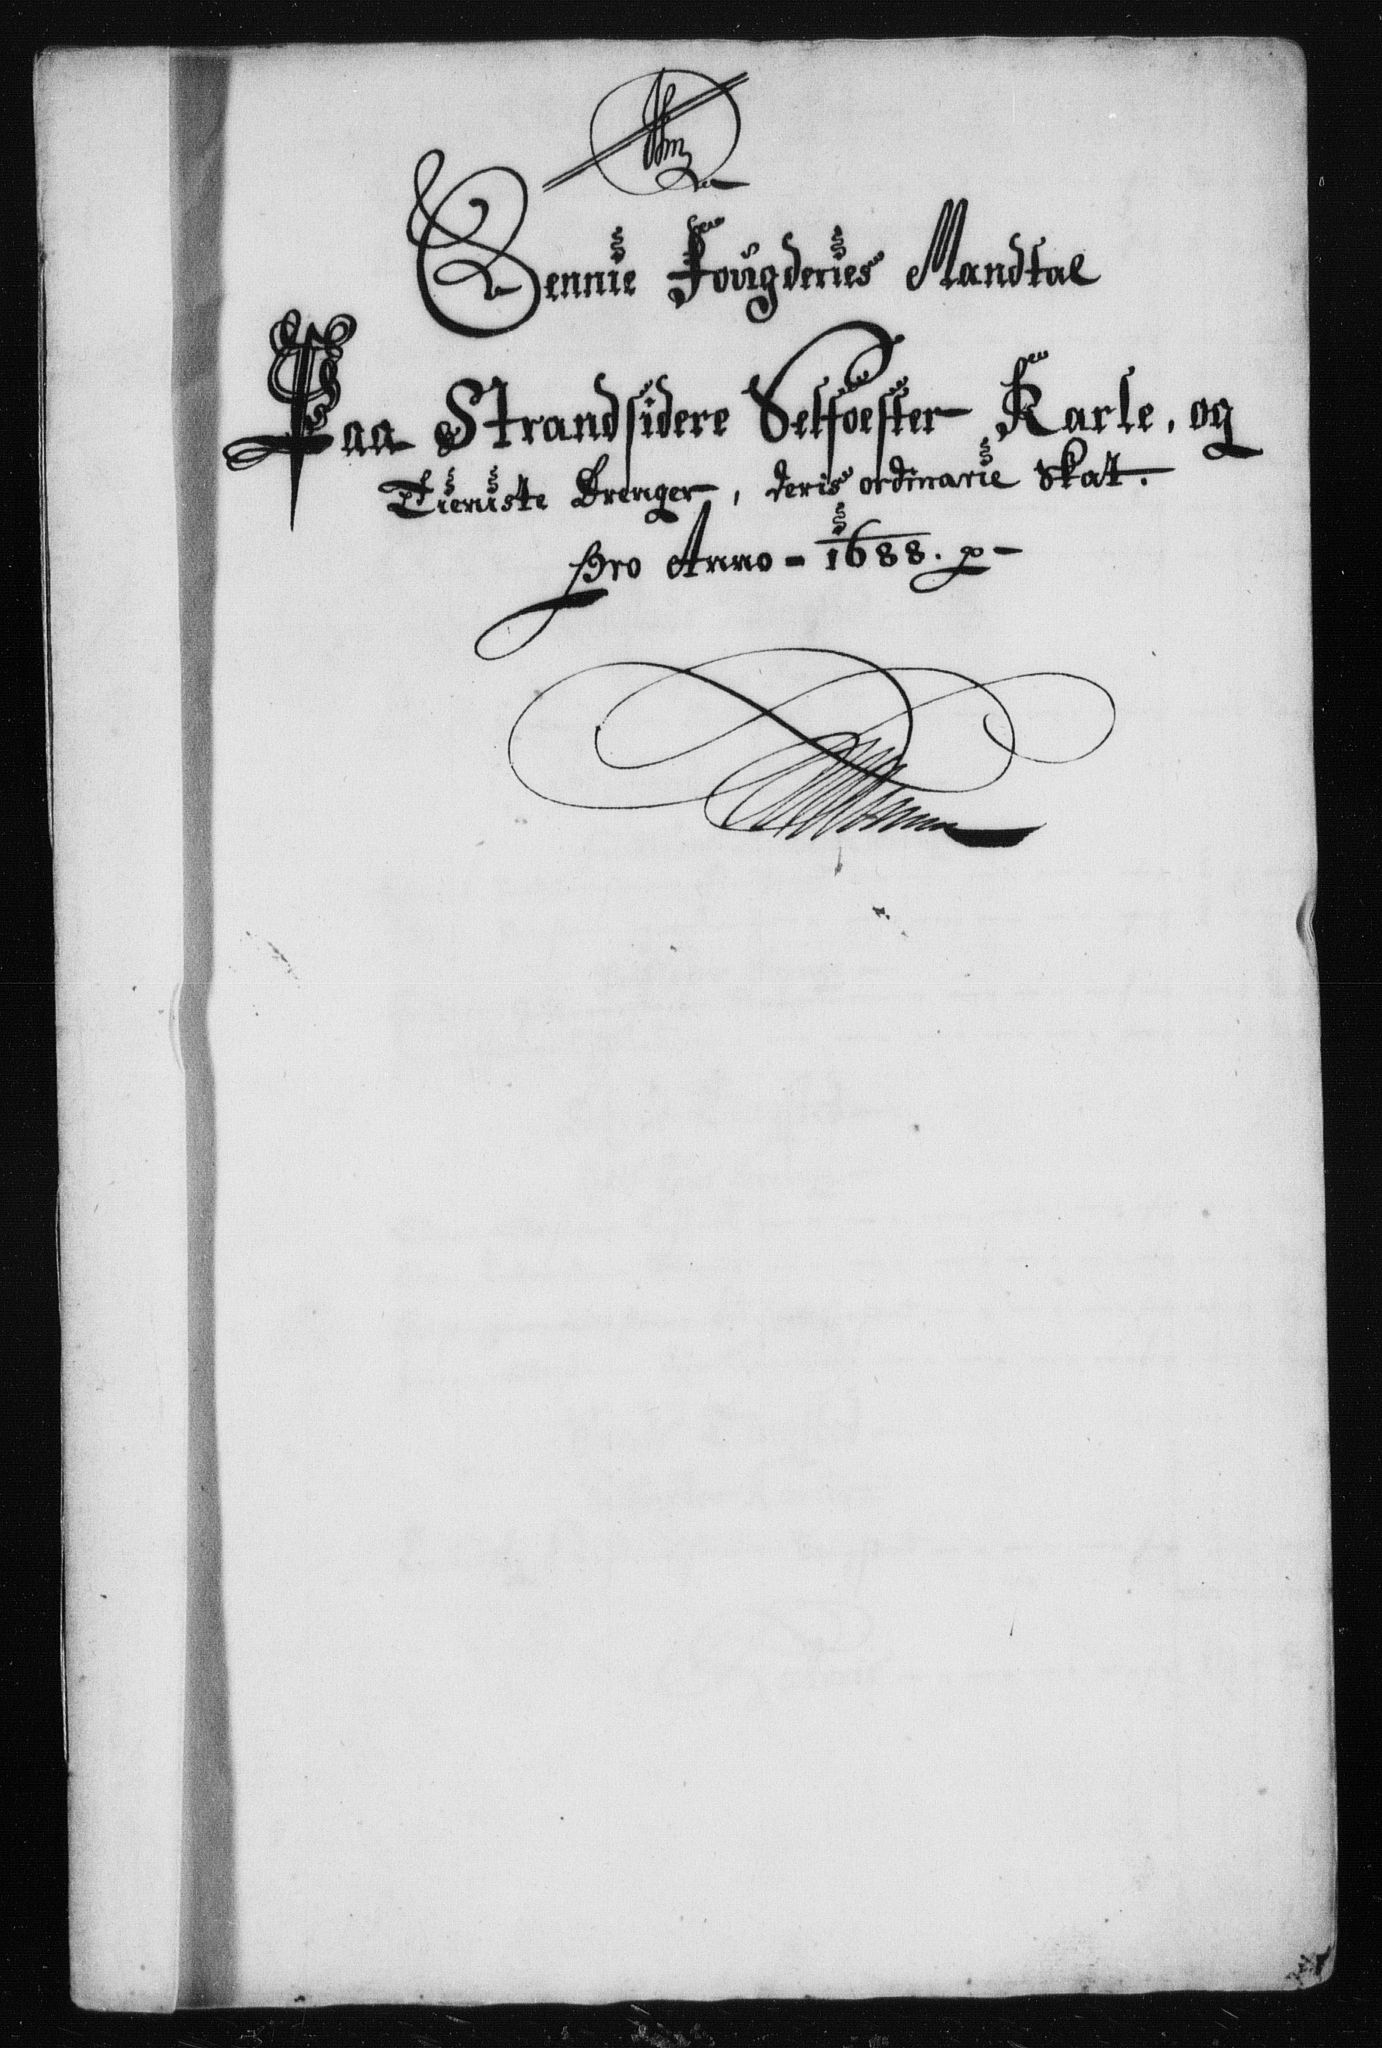 Sennie Fougderies Mandtal
Paa Strandsidere Selfoester Karle, og
Tieniste Drenger, deris ordinarie Skat.
Pro Anno - 1688.